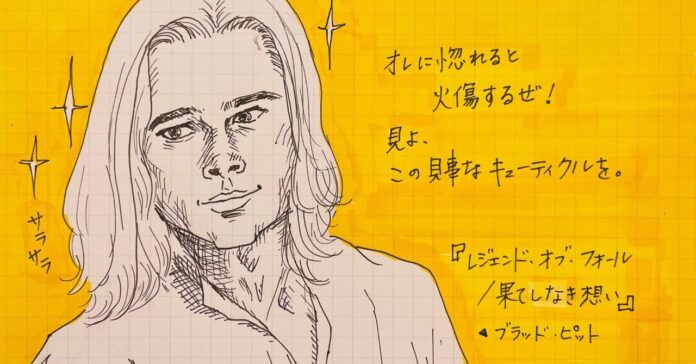 オレに惚れると
火傷するぜ!
見よ、
この見事なキューティクルを。
サラサラ
『レジェンド・オブ・フォール
/果てしなき想い』
◀ブラッド・ピット